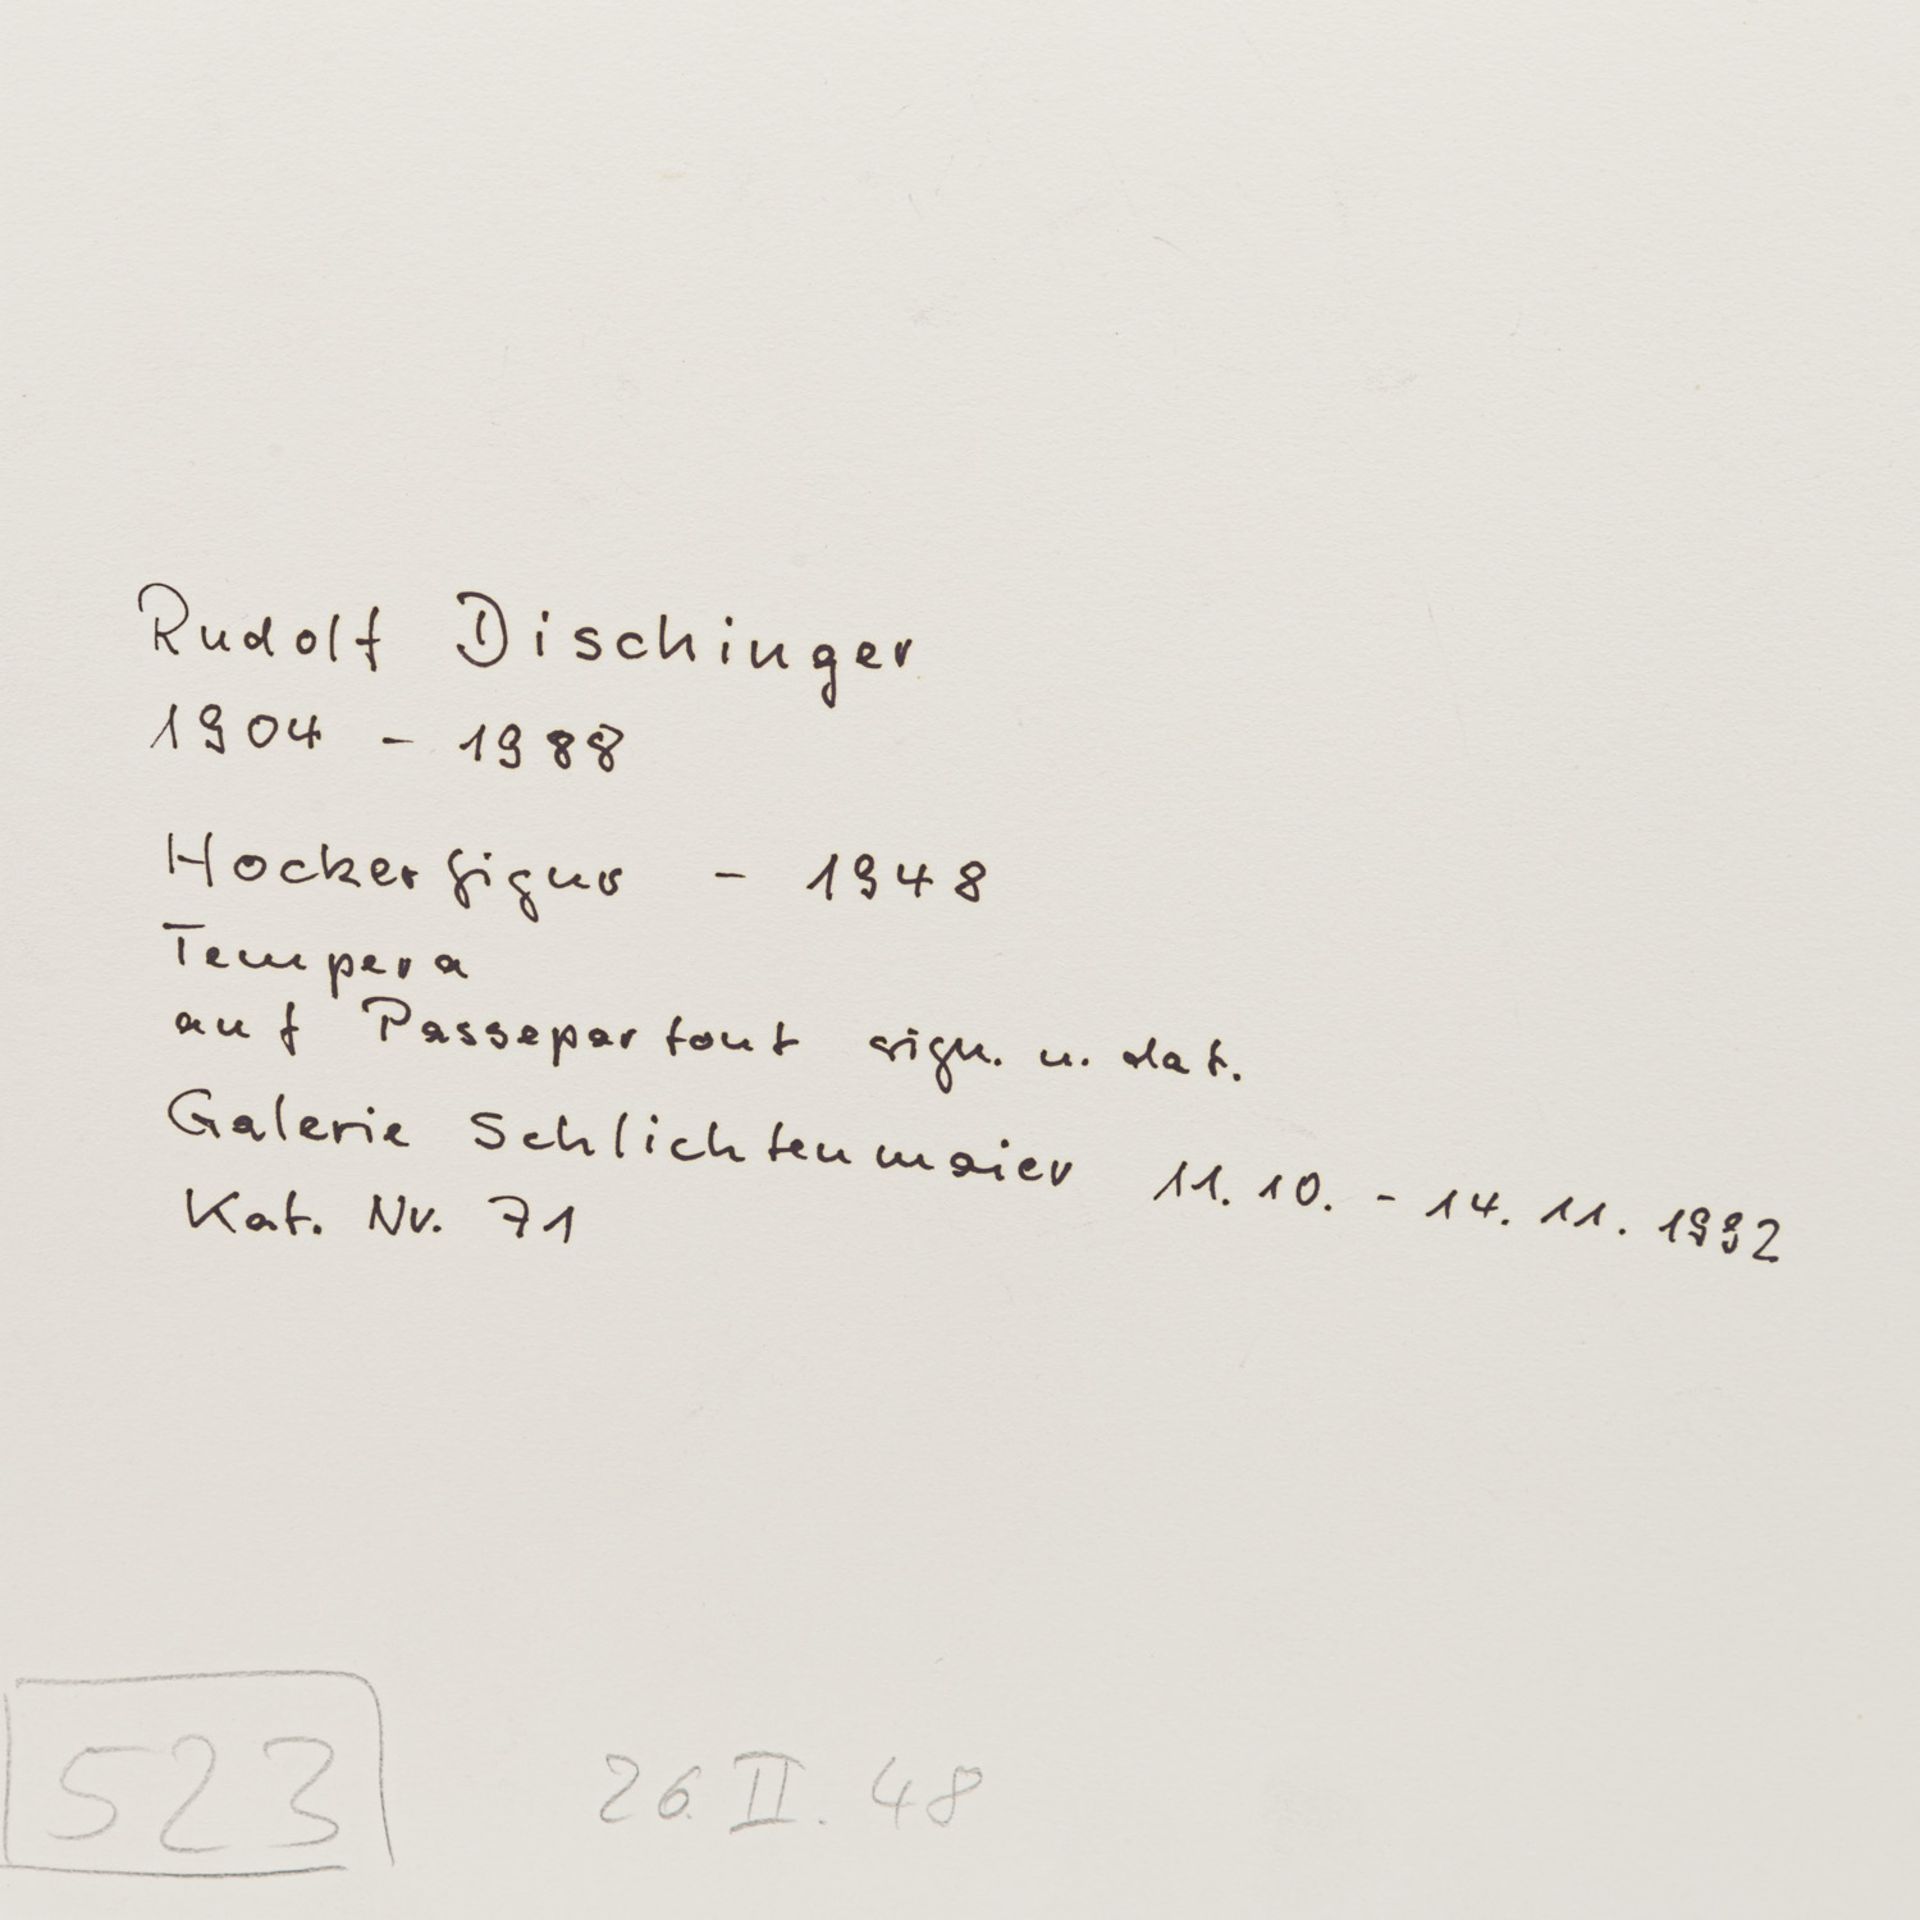 Rudolf Dischinger
1904 - 1988
Hockerfigur - 1948
Tempera
auf Passepartout sign. u. dat.
Galerie Schlichtenmaier 11.10. - 14. 11. 1992
Kat. Nr. 71
523 26. II. 48